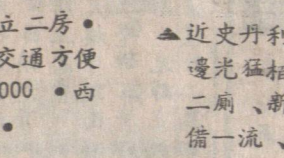 立二房●
交通方便
000 ●西
●
▲近史丹利
邊光猛柏
二廁、新
備一流、